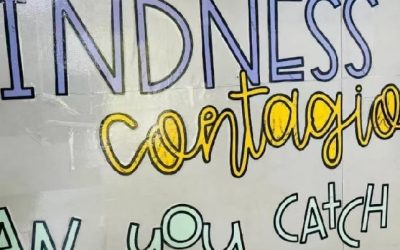 INDNESS
contagio
AN you CATCH